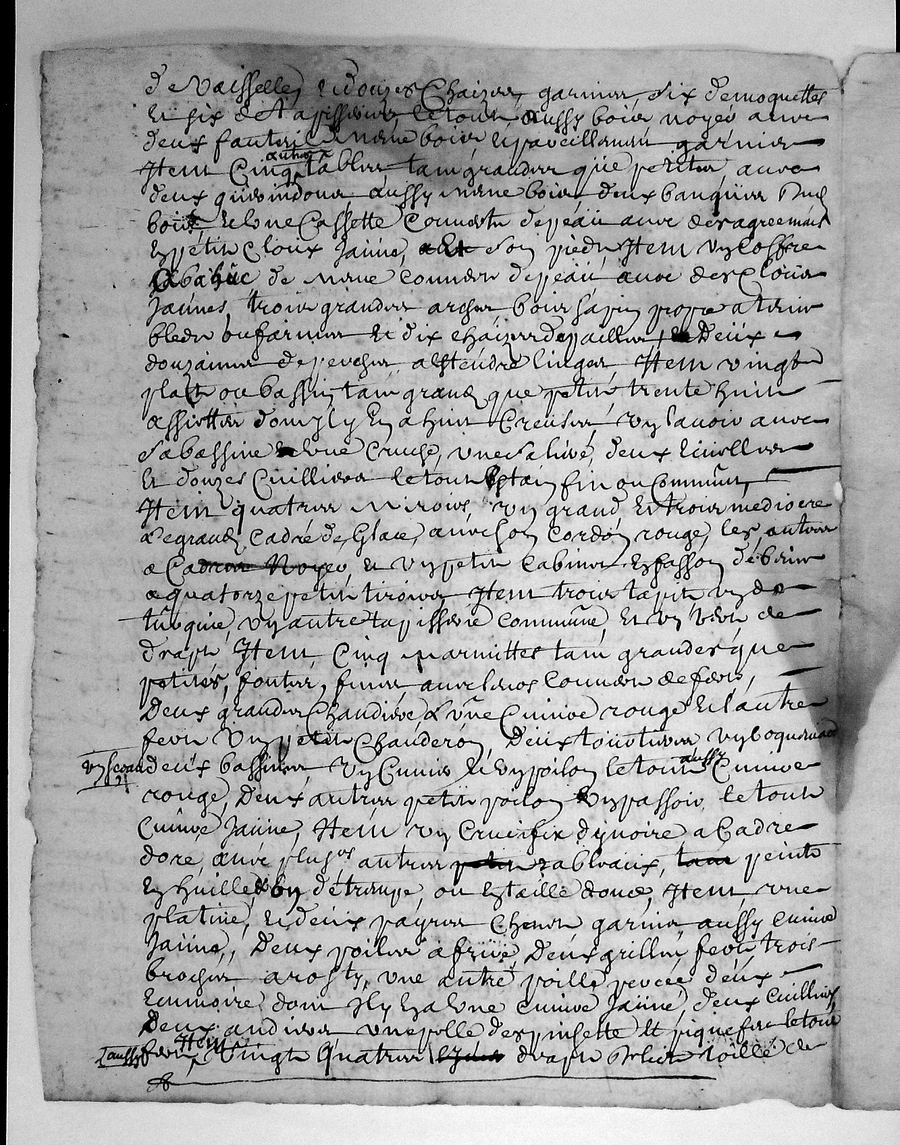 de vaisselle, et douzes chaizes garnies, six de moquettes
et six de tapisseries le tout aussy bois noyer avec
deux fauteuils meme bois et pareillement garnies
Item cinq autres tables tam grandes que petites, avec
deux gueridons aussy meme bois deux banquies
bois et une cassette couverte de peau avec des agreemens
et petits cloux jaune, son pied, Item un coffre
de meme couvert de peau avec des clous
jaunes, trois grandes arches bois sapin propre a tenir
bleds ou farines et dix chaizes de pailles, deux
douzaines de perches a estendre linges Item vingt
plats ou bassins tam grands que petits trente huit
assiettes dont il y en a huit creuses un lavoir avec
sa bassine une cruche, une saliere, deux ecuelles
et douzes cuillieres le tout estain fin ou commun,
Item quatres miroirs, un grand et trois mediocre
le grand cadré de glace, avec son cordon rouge, les autres
a cadres noyer et un petit cabinet en fasson débeine
a quatorze petits tiroires Item trois tapits un de
turquie, un autre tapisserie commune et un vert de
drapt, Item cinq marmittes tam grandes que
petites, fontes, avec leurs couvert de fert,
Deux grandes chaudiere l'une cuivre rouge et l'autre
fert un petit chauderon, Deux tourtieres un coquemard
un sceau deux bassines un cuvier et un poilon le tout aussy cuivre
rouge, Deux autres petits poilon un passoir le tout
cuivre jaune, Item un crucifix d'yvoire a cadre
doré avec plusrs autres petits tableaux, tant peints
en huille en détrampe, ou en taille douce, Item une
platine, et deux payres chenets garnies aussy cuivre
jaune, Deux poiles a frire, Deux grilles fert trois
broches a rosty, une autre poille percée deux
ecumoire dont il y en a une cuivre jaune, deux cuilliers
Deux andiers une pelle des pinsette et pique feu le tout
aussy fert Item vingt quatres drapts de lict toille de